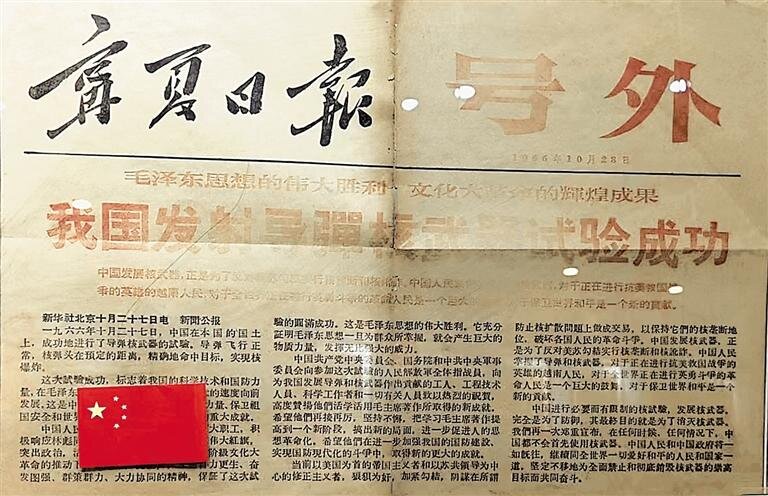 宁夏日報
号外
1966年10月28日
毛泽东思想的伟大胜利 文化大革命的輝煌成果
我国发射导彈核武器試验成功
中国发展核武器,正是为了
争的英雄的越南人民,对于
新华社北京十月二十七日电 新聞公报
一九六六年十月二十七日,中国在本国的国土
上,成功地进行了导弹核武器的試驗。导弹飞行正
常,核弹头在预定的距离,精确地命中目标,实现核
爆炸。
这次試驗成功,标志着我国的科学技术和国防力
量,在毛泽东
发展。这是中
国安全和世界
中国
极响应林彪同
突出政治,活
革命的推动下
发图强、群策群力、大力协同的精神,保証了这次試
驗的圓滿成功。这是毛泽东思想的伟大胜利。它充分
証明毛泽东思想一旦为群众所掌握,就会产生巨大的
物质力量,发挥无比强大的威力。
中国共产党中央委員会、国务院和中共中央軍事
委員会向参加这次試驗的人民解放軍全体指战員,向
为我国发展导弹和核武器作出貢献的工人、工程技术
人員、科学工作者和一切有关人員致以热烈的祝賀,
高度贊揚他們活学活用毛主席著作所取得的新成就,
希望他們再接再厉,坚持不懈,把学习毛主席著作提
高到一个新阶段,搞出新的局面,进一步促进人的思
想革命化,希望他們在进一步加强我国的国防建設,
实現国防現代化的斗争中,取得新的更大的成就。
当前以美国为首的帝国主义者和以苏共領导为中
心的修正主义者,狼狈为奸,加紧勾結,阴謀在所謂
防止核扩散問題上做成交易,以保持它們的核垄断地
位,破坏各国人民的革命斗争。中国发展核武器,正
是为了反对美苏勾結实行核垄断和核訛詐。中国人民
掌握了导弹和核武器,对于正在进行抗美救国战爭的
英雄的越南人民,对于全世界正在进行英勇斗爭的革
命人民是一个巨大的鼓舞,对于保卫世界和平是一个
新的貢献。
中国进行必要而有限制的核試驗,发展核武器,
完全是为了防御,其最終目的就是为了消灭核武器。
我們再一次郑重宣布,在任何时候、任何情况下,中
国都不会首先使用核武器。中国人民和中国政府将一
如既往,継續同全世界一切爱好和平的人民和国家一
道,坚定不移地为全面禁止和彻底銷毁核武器的崇高
目标而共同奋斗。